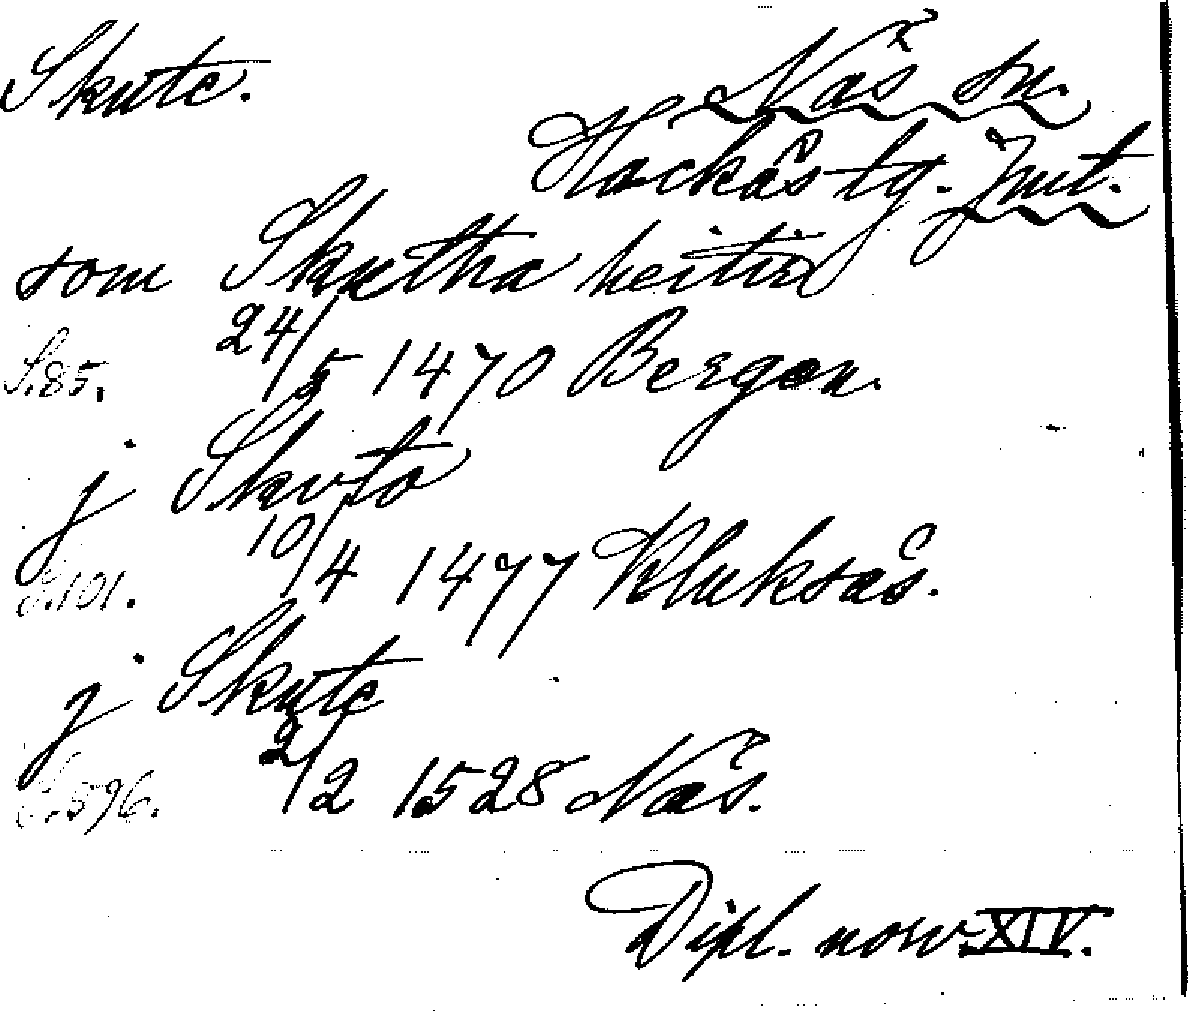 Skute.
Näs sn.
Hackås tg. Jmt.
som Skutha heitir
24/5 1470 Bergen.
S.85.
j Skuto
10/4 1477 Kluksås.
S.101.
j Skute
2/2 1528 Näs.
S.596.
Dipl. norv. XIV.